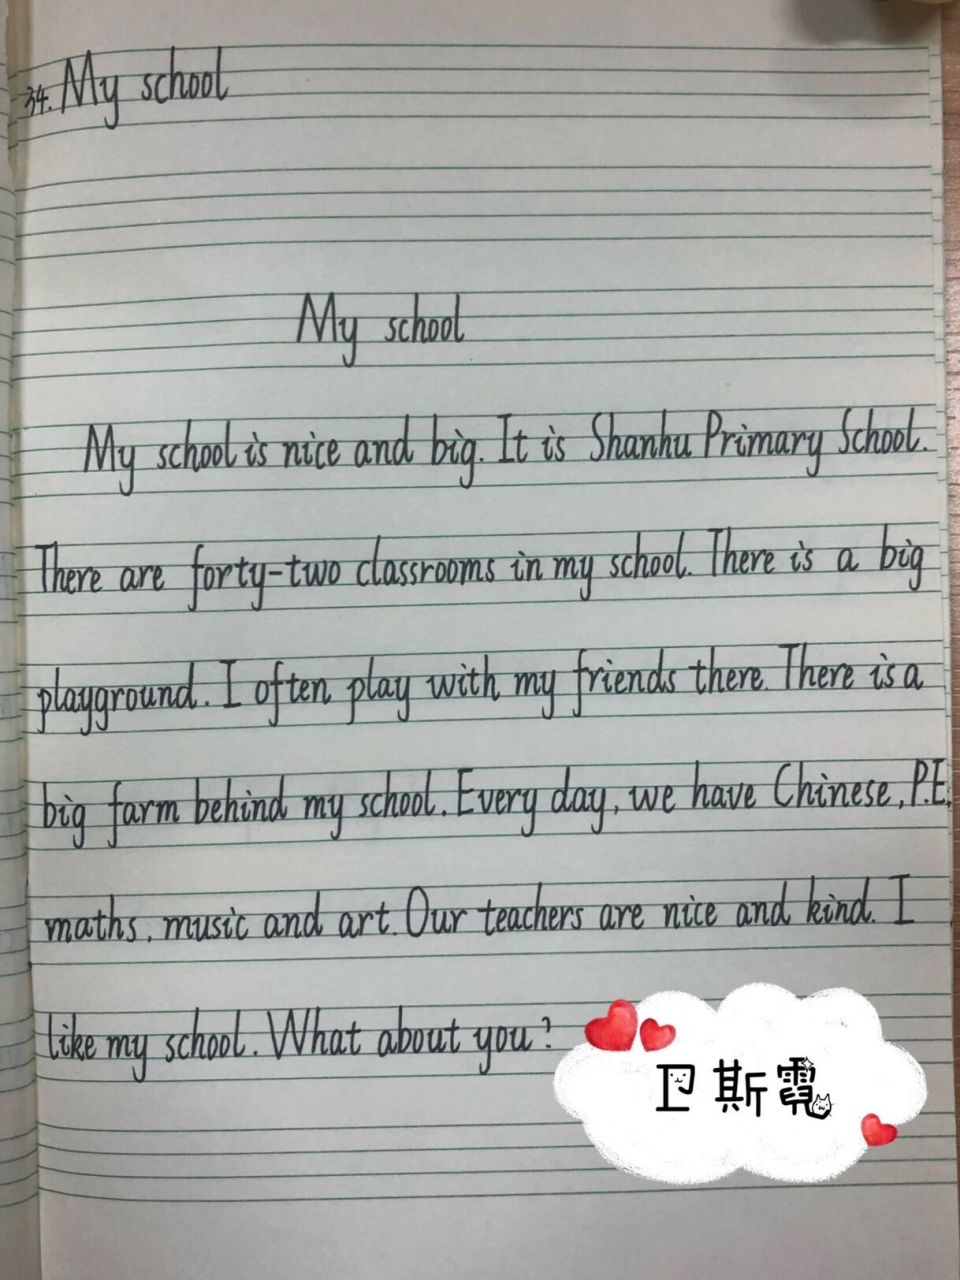 34. My school
My school
My school is nice and big. It is Shanhu Primary School.
There are forty-two classrooms in my school. There is a big
playground. I often play with my friends there. There is a
big farm behind my school. Every day, we have Chinese, P.E.
maths, music and art. Our teachers are nice and kind. I
like my school. What about you?
卫斯霓